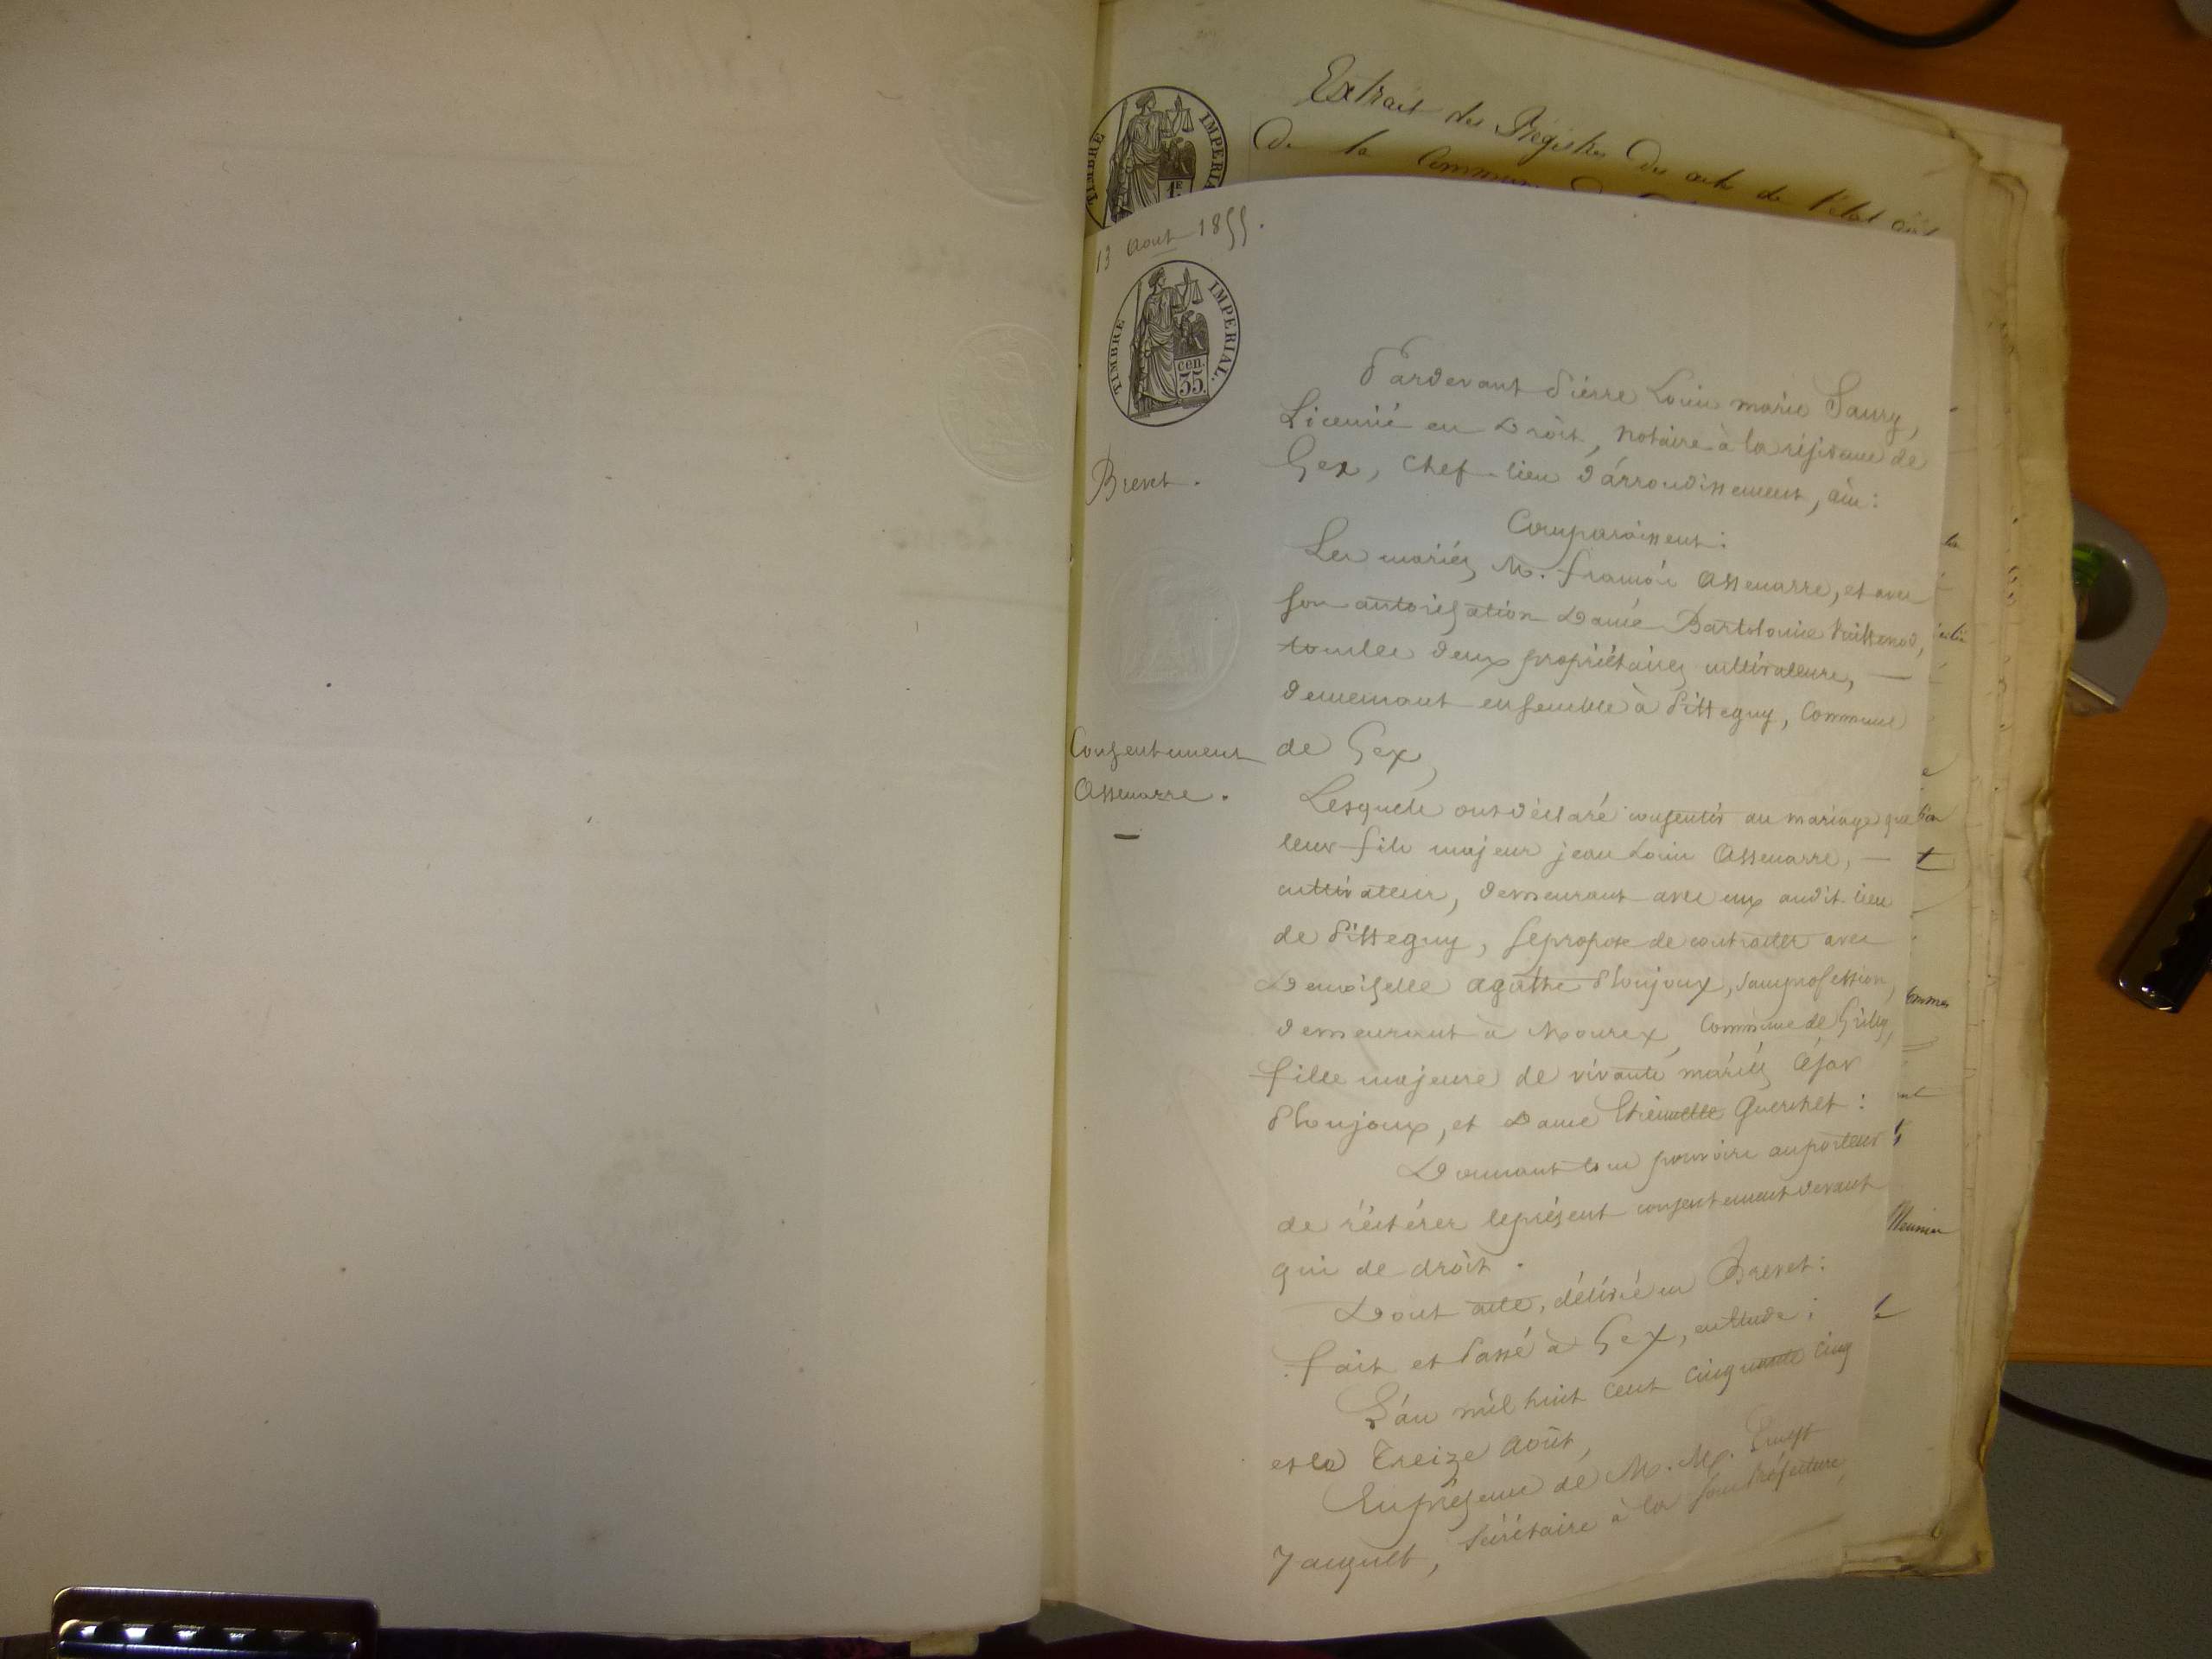 Extrait des Régistres des actes de l'état civil
de la Commune
TIMBRE IMPERIAL
1F
13 Aout 1855.
TIMBRE IMPERIAL.
cen. 35.
Pardevant Pierre Louis marie
Licencié en Droit, notaire à la résidence de
Brevet.
Gex, chef-lieu d'arrondissement, ain:
Comparaissent:
Les mariés M. françois Assenarre, et avec
son autorisation Dame Bartolomie
tous les deux propriétaires cultivateurs, —
demeurant ensemble à Pitteguy, Commune
Consentement
Assenarre.
de Gex,
Lesquels ont déclaré consentir au mariage que
leur fils majeur jean Louis Assenarre, —
cultivateur, demeurant avec eux audit lieu
de Pitteguy, se propose de contracter avec
Demoiselle agathe Ploujoux, sans profession,
demeurant à Mourex, Commune de Grilly,
fille majeure de vivants mariés César
Ploujoux, et Dame Etiennette Guerchet:
Donnant tous pouvoirs au porteur
de réitérer le présent consentement devant
qui de droit.
Dont acte, délivré en Brevet:
fait et Passé à Gex, en Etude;
L'an mil huit cent cinquante cinq
et le Treize Août,
En présence de M.M.
secrétaire à la sous Préfecture,